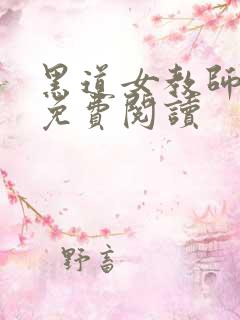 黑道女教師
免費閱讀
野畜